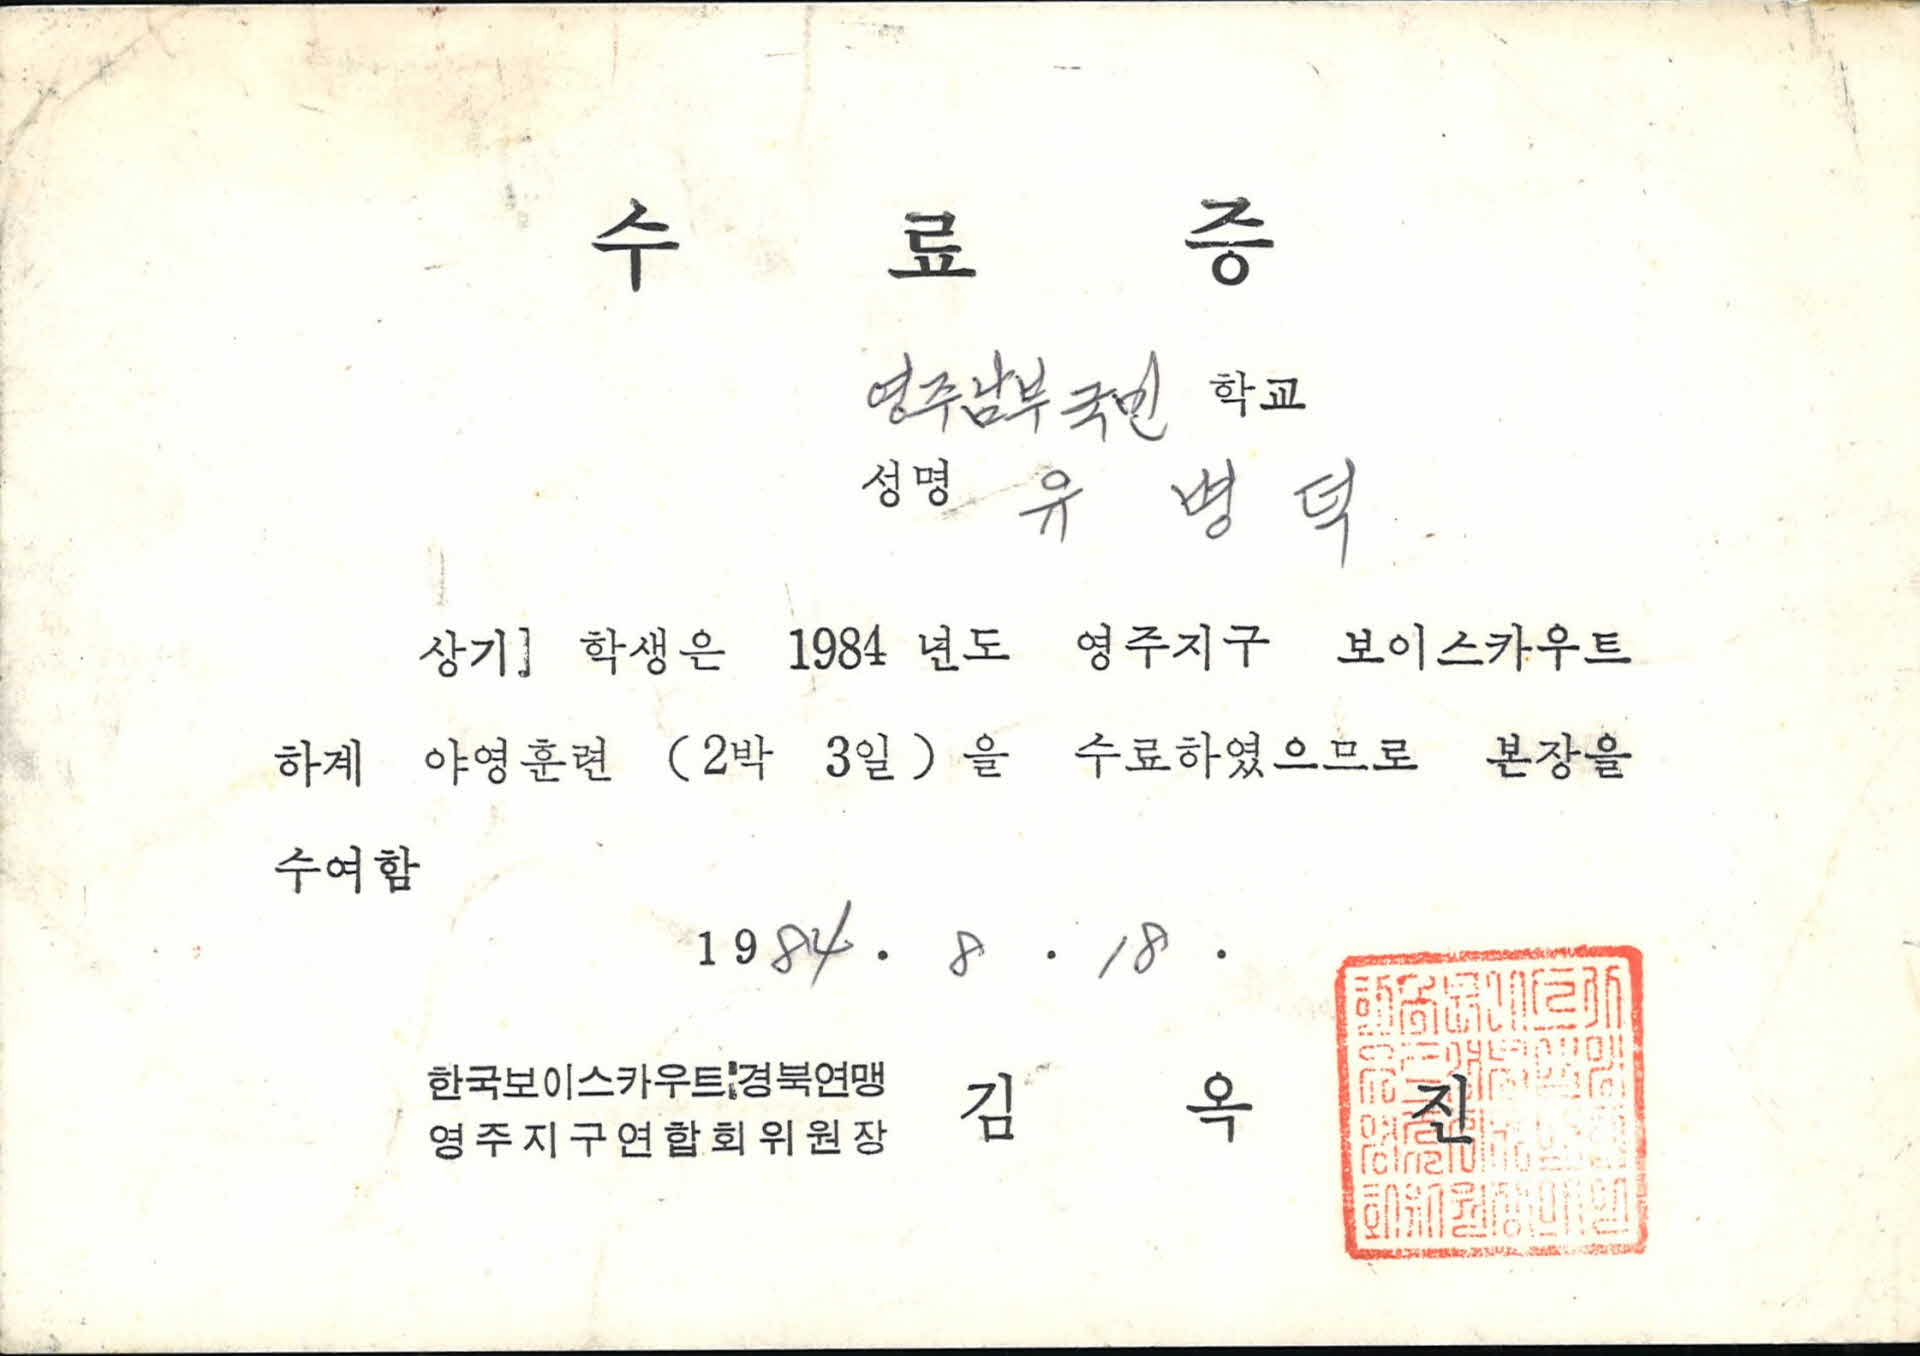 수 료 증
영주남부국민 학교
성명 유 병 덕
상기 학생은 1984 년도 영주지구 보이스카우트
하계 야영훈련 (2박 3일)을 수료하였으므로 본장을
수여함
1984. 8. 18.
한국보이스카우트경북연맹
영주지구연합회위원장 김 옥 진